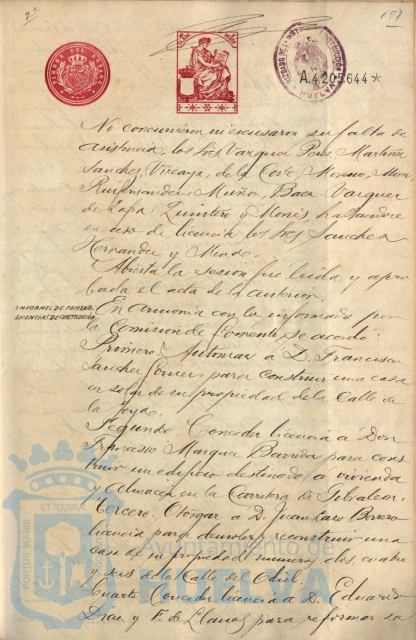 2ª
157
TIMBRE DEL ESTADO
JUZGADO DE 1ª INSTANCIA E INSTRUCCIÓN
HUELVA
A.4.205.644*
No concurrieron ni escusaron su falta de
asistencia, los Sres Vazquez Perez, Martinez
Sanchez, Vizcaya, de la Corte, Moreno, Mora
Muñoz, Baez Vazquez
de Zapa, Quintero y Monis, hallandose
en uso de licencia los Sres Sanchez
Hernandez y Mendez.
Abierta la sesion fue leida y apro
bada el acta de la anterior.
INFORMES DE FOMENTO
LICENCIAS DE CONSTRUCCION
En armonia con lo informado por
la Comision de Fomento, se acordó:
Primero. Autorizar a D. Francisco
Sanchez para construir una casa
en solar de su propiedad de la Calle de
la Joya.
Segundo. Conceder licencia á Don
Francisco Marquez Barrida para cons
truir un edificio destinado a vivienda
y almacen en la Carretera de Gibraleon.
Tercero. Otorgar á D. Juan Caro Borrero
licencia para demoler y reconstruir una
casa de su propiedad numero dos, cuatro
y seis de la Calle del Odiel.
Cuarto. Conceder licencia a D. Eduardo
Diaz y F. de Llanos para reformar su
PORTUS MARIS ET TERRAE
Ayuntamiento de
HUELVA